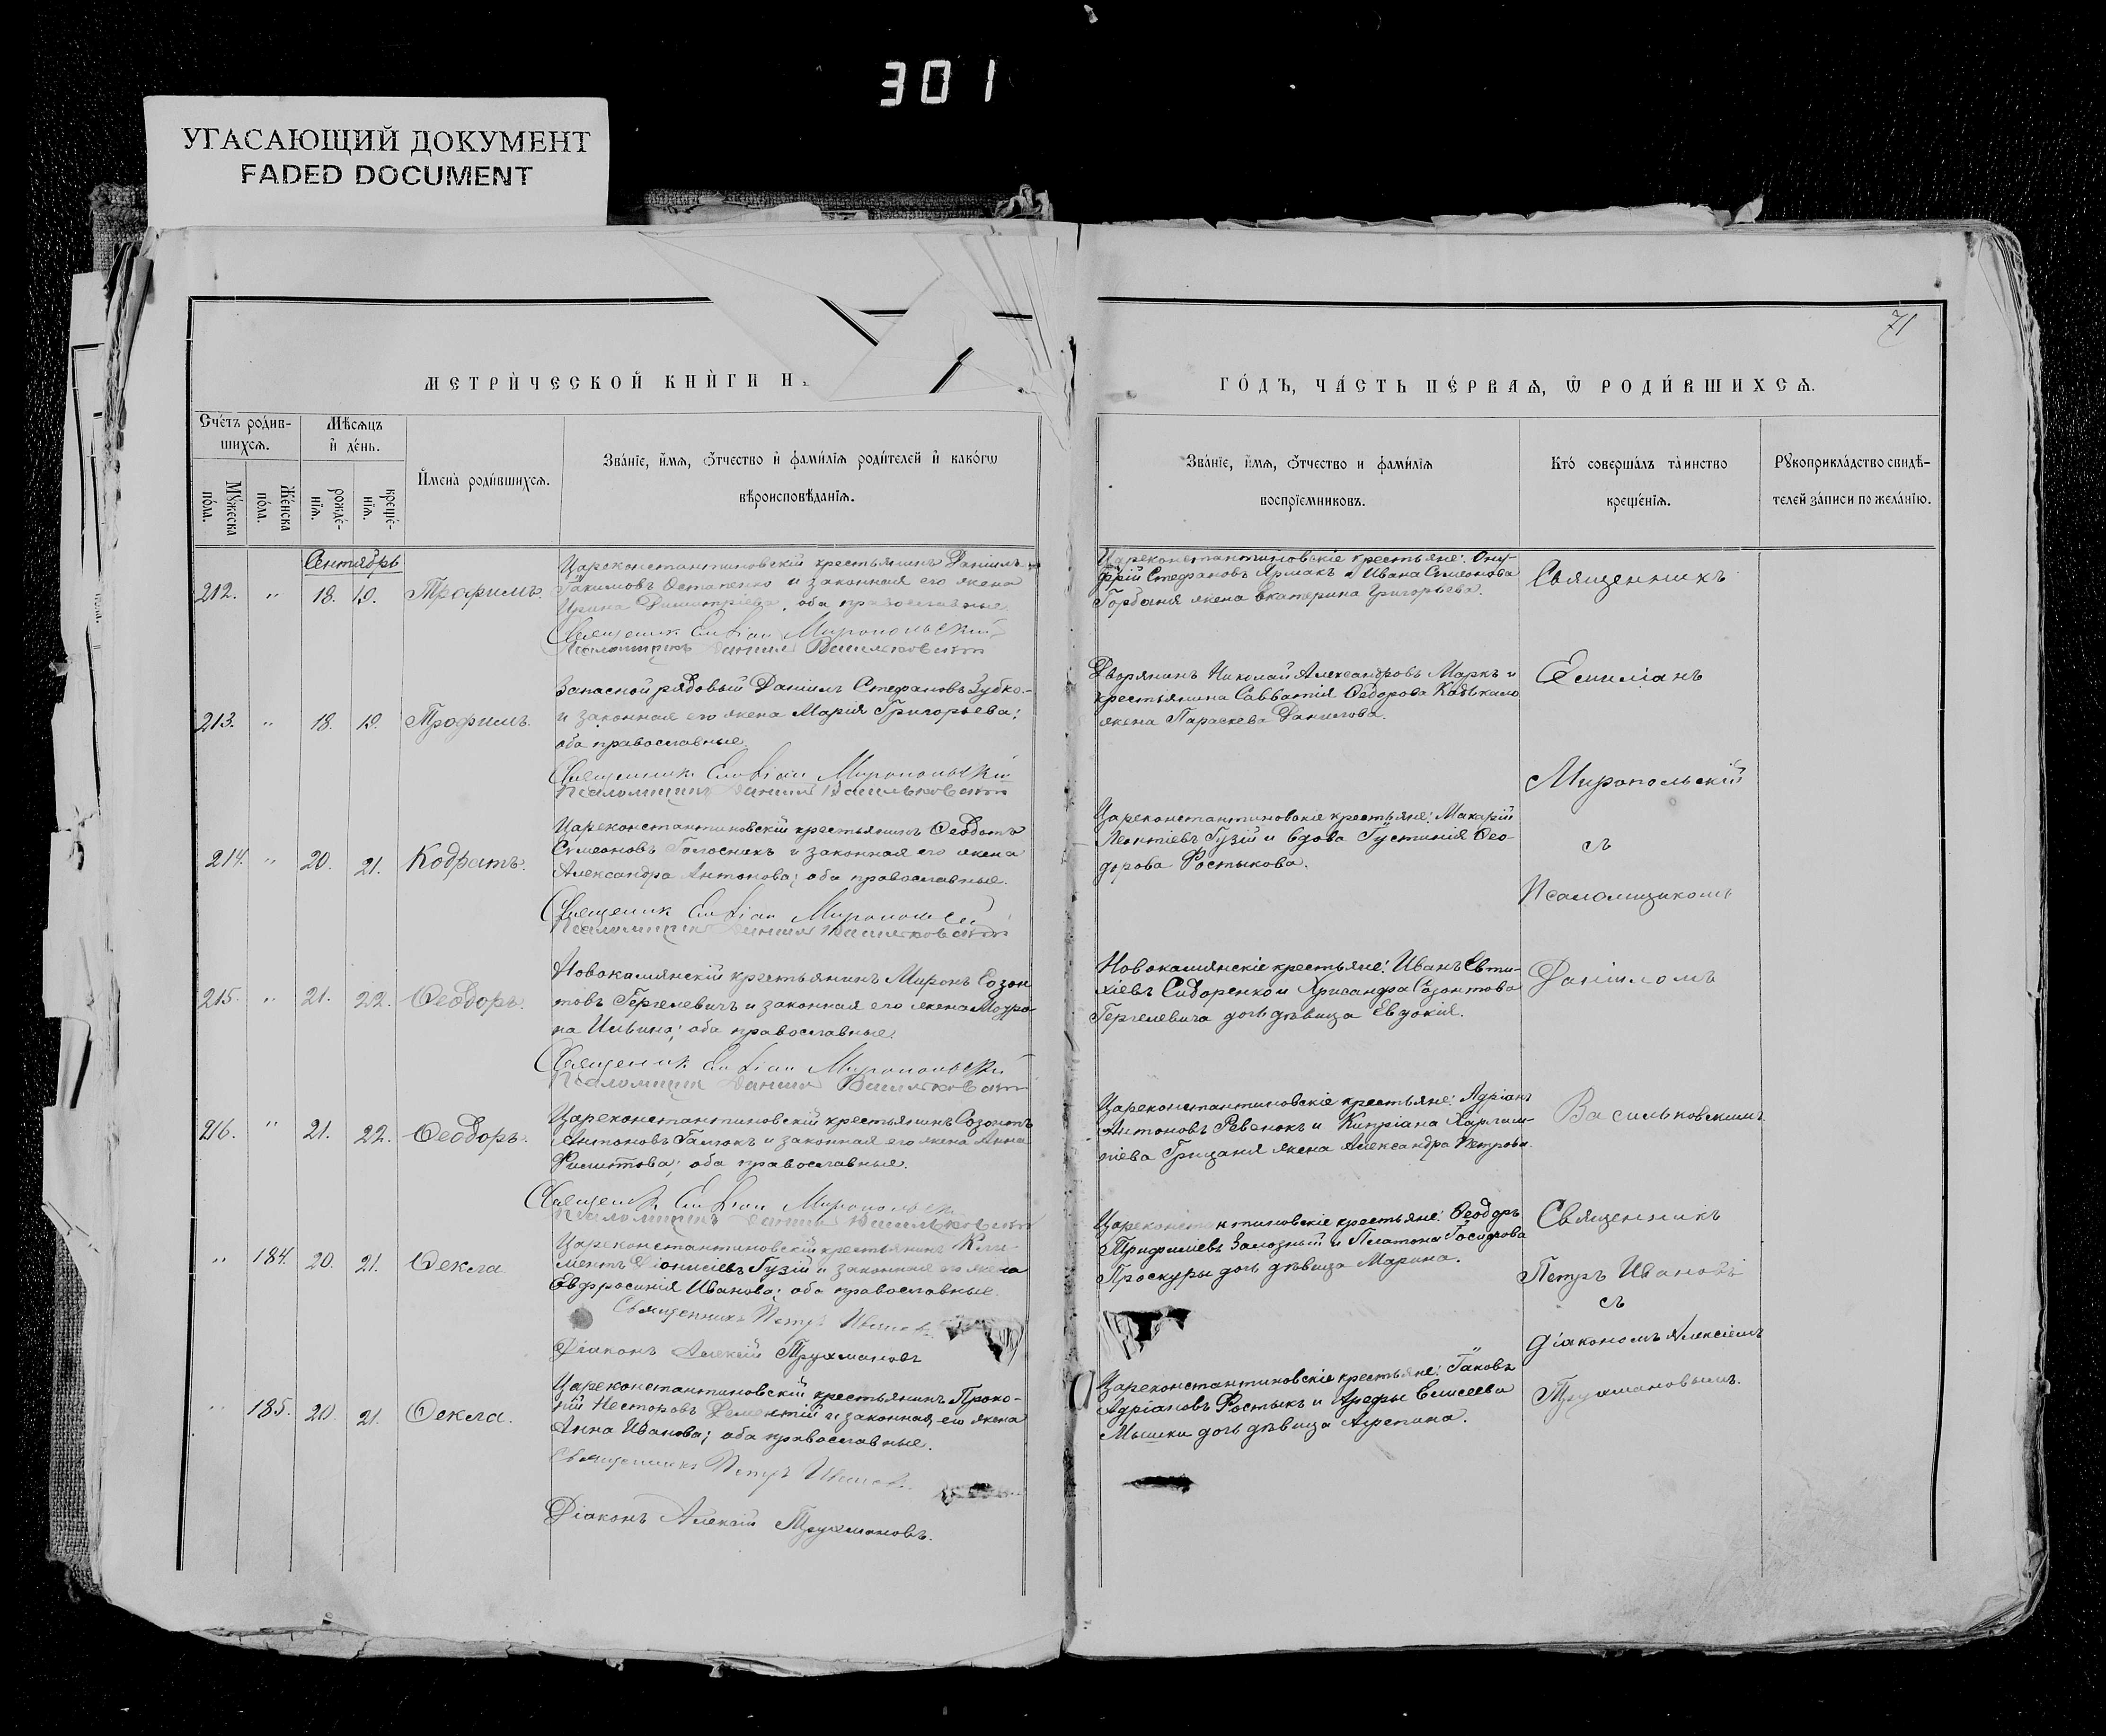 301
УГАСАЮЩИЙ ДОКУМЕНТ
FADED DOCUMENT
71
МЕТРИ́ЧЕСКОЙ КНИ́ГИ Н
ГО́ДЪ, ЧА́СТЬ ПЕ́РВАѦ, Ѿ РОДИ́ВШИХСѦ.
Сче́тъ роди́в-
шихсѧ.
Мѣ́сѧцъ
и҆ де́нь.
И҆мена̀ роди́вшихсѧ.
Зва́нїе, и҆́мѧ, ѻ҆́тчество и҆ фами́лїѧ роди́телей и҆ како́гѡ
вѣроисповѣ́данїѧ.
Мꙋ́жеска
по́ла.
Же́нска
по́ла.
рожде́-
нїѧ.
креще́-
нїѧ.
Зва́нїе, и҆́мѧ, ѻ҆́тчество и фами́лїѧ
воспрїемниковъ.
Кто̀ соверша́лъ та̀инство
креще́нїѧ.
Рꙋкоприкла́дство свидѣ́-
телей за́писи по жела́нїю.
Сентябрь
212. " 18. 19. Трофимъ.
Цареконстантиновскій крестьянинъ Даніилъ
Іакимовъ Остапенко и законная его жена
Ирина Димитріева, оба православные
Священник Емилиан Миропольский
Псаломщикъ Даниил Васильковский
Цареконстантиновскіе крестьяне: Ону-
фрій Стефановъ Ярмакъ и Ивана Симеонова
Горбаня жена Екатерина Григорьева.
Священникъ
213. " 18. 19. Трофимъ.
Запасной рядовый Даніилъ Стефановъ Зубко
и законная его жена Марія Григорьева;
оба православные.
Священник Емилиан Миропольский
Псаломщикъ Даниил Васильковский
Дворянинъ Николай Александровъ Маркъ и
крестьянина Савватія Ѳедорова
жена Параскева Данилова.
Емиліанъ
Миропольскій
214. " 20. 21. Кодратъ.
Цареконстантиновскій крестьянинъ Ѳеодотъ
Симеоновъ Голосникъ и законная его жена
Александра Антонова; оба православные.
Священник Емилиан Миропольский
Псаломщикъ Даниил Васильковский
Цареконстантиновскіе крестьяне: Макарій
Леонтіевъ Гузій и вдова Іустинія Ѳео-
дорова Ростыкова.
съ
Псаломщикомъ
215. " 21. 22. Ѳеодоръ.
Новокамянскій крестьянинъ Миронъ Созон
товъ Гергелевичъ и законная его жена Мотро-
на Ильина; оба православные.
Священник Емилиан Миропольский
Псаломщикъ Даниил Васильковский
Новокамянскіе крестьяне: Иванъ Евти-
хіевъ Сидоренко и Хрисанфа Созонтова
Гергелевича дочь дѣвица Евдокія.
Даніиломъ
216. " 21. 22. Ѳеодоръ.
Цареконстантиновскій крестьянинъ Созонтъ
Антоновъ Галюкъ и законная его жена Анна
Филиппова; оба православные.
Священник Емилиан Миропольский
Псаломщикъ Даниил Васильковский
Цареконстантиновскіе крестьяне: Адріанъ
Антоновъ Ревенокъ и Кипріана Харлам-
піева Грицаня жена Александра Петрова
Васильковскимъ
" 184. 20. 21. Ѳекла
Цареконстантиновскій крестьянинъ Кли-
ментъ Діонисіевъ Гузій и законная его жена
Евфросинія Иванова; оба православные.
Священникъ Петръ Иванов
Діаконъ Алексій Трухмановъ
Цареконстантиновскіе крестьяне: Ѳеодоръ
Трифиліевъ Залозный и Платона Іосифова
Проскуры дочь дѣвица Марина.
Священникъ
Петръ Ивановъ
съ
" 185. 20. 21. Ѳекла.
Цареконстантиновскій крестьянинъ Проко-
пій Несторовъ Дементій и законная его жена
Анна Иванова; оба православные.
Священникъ Петръ Иванов
Діаконъ Алексій Трухмановъ.
Цареконстантиновскіе крестьяне: Іаковъ
Адріановъ Ростыкъ и Арефы Елисеева
Мышки дочь дѣвица Агрепина.
діакономъ Алексіемъ
Трухмановымъ.